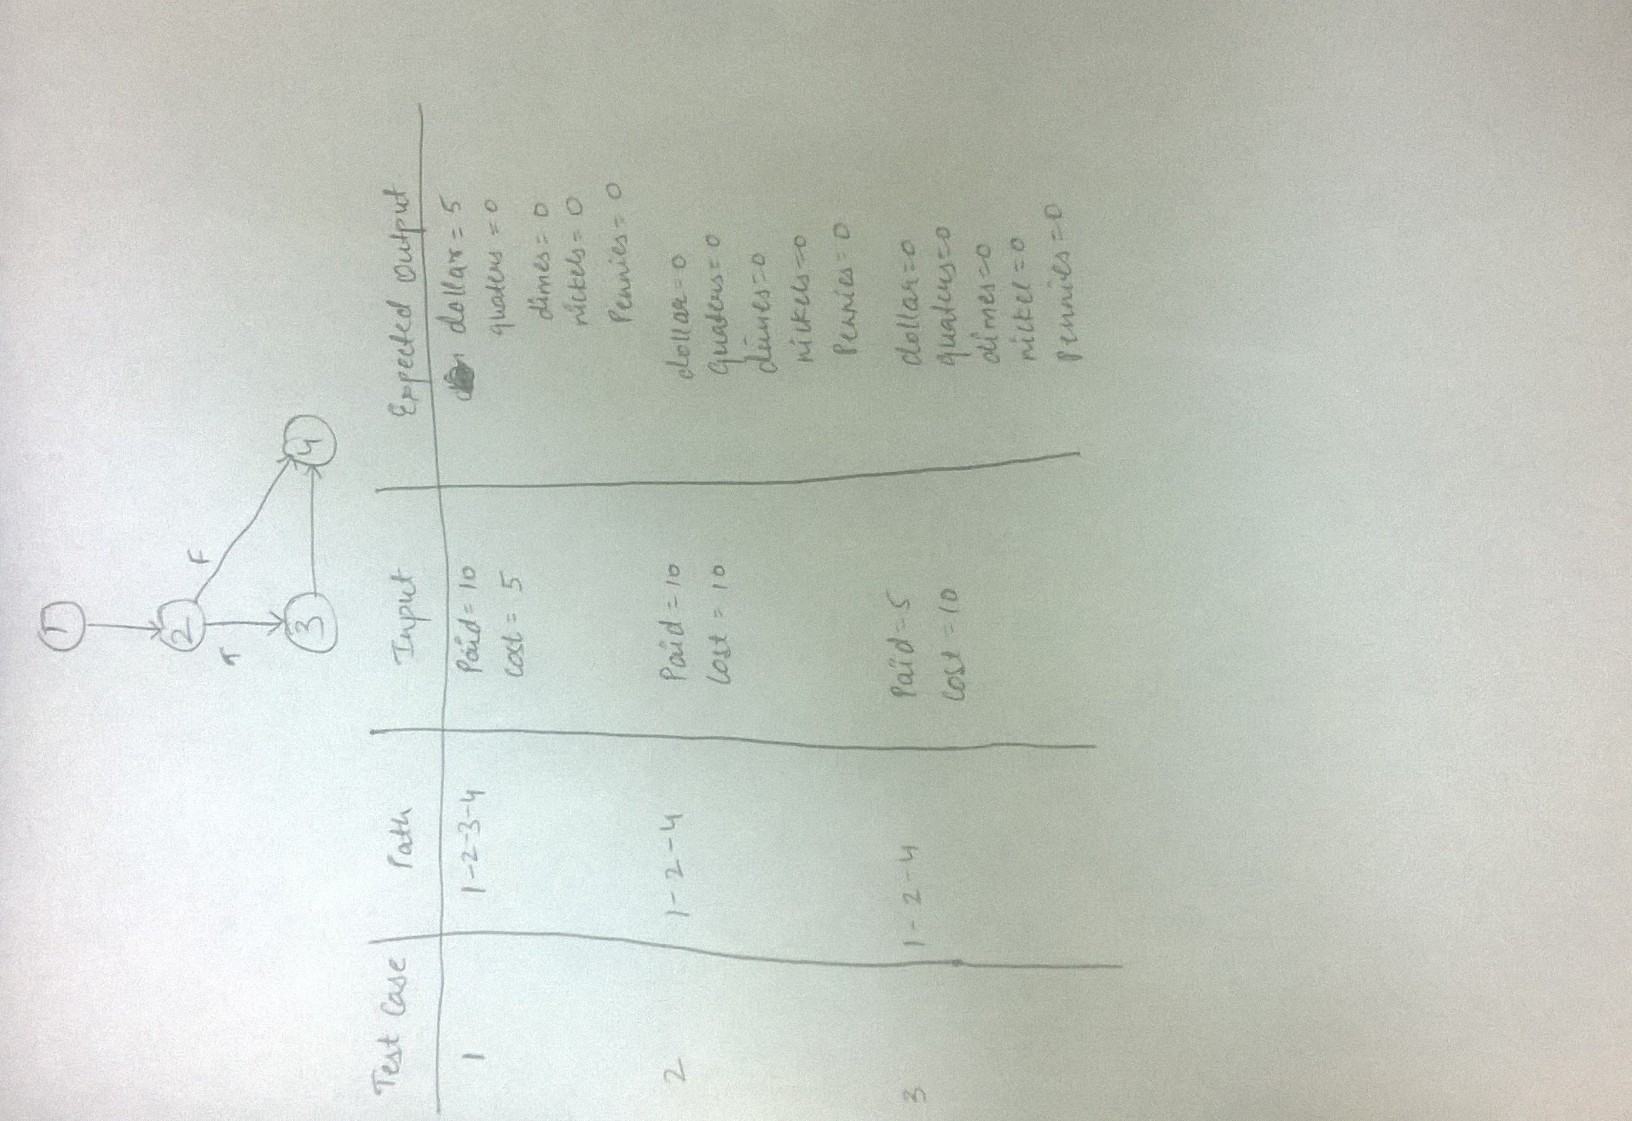 1
2
F
T
3
4
Test Case Path Input Expected Output
1 1-2-3-4 Paid = 10 dollar = 5
cost = 5 quaters = 0
dimes = 0
nickels = 0
Pennies = 0
2 1-2-4 Paid = 10 dollar = 0
Cost = 10 Quaters = 0
dimes = 0
nickels = 0
Pennies = 0
3 1-2-4 Paid = 5 dollar = 0
Cost = 10 quaters = 0
dimes = 0
nickel = 0
Pennies = 0